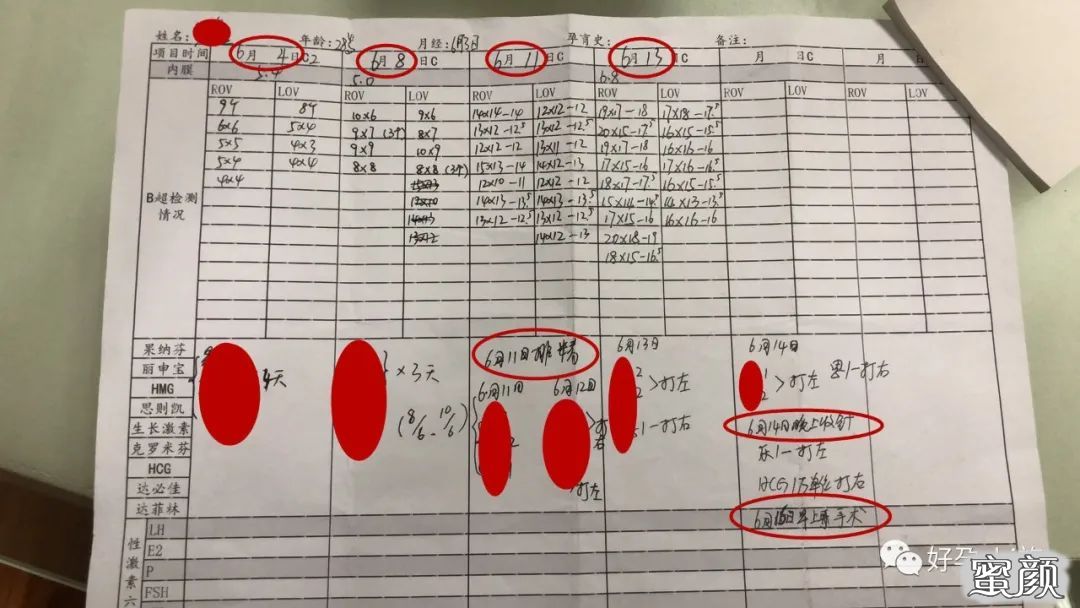 姓名: 年龄: 28岁 月经: 6月3日 孕育史: 备注:
项目时间 6月 4日C2 6月 8日C 6月 11日C 6月 13日C 月 日C 月
内膜 5.4 5.0 6.8
B超检测情况 ROV LOV ROV LOV ROV LOV ROV LOV ROV LOV ROV LOV
9个 8个 10×6 9×6 14×14-14 12×12-12 19×17-18 17×18-17.5
6×6 5×4 9×7 (3个) 8×7 13×12-12.5 13×12-12.5 20×15-17.5 16×15-15.5
5×5 4×3 9×9 10×9 12×12-12 13×11-12 19×17-18 16×16-16
5×4 4×4 8×8 8×8 (3个) 15×13-14 14×12-13 17×15-16 17×16-16.5
4×4 12×10-11 12×12-12 18×17-17.5 16×15-15.5
14×13-13.5 14×13-13.5 15×14-14.5 14×13-13.5
13×12-12.5 13×12-12.5 17×15-16 16×16-16
14×12-13 20×18-19
18×15-16.5
果纳芬
丽申宝
HMG
思则凯
生长激素
克罗米芬
HCG
达必佳
达菲林
4天
×3天
(8/6-10/6)
6月11日
6月11日 6月12日
打右
打左
6月13日
2
2 >打左
1-打右
6月14日
1
2 >打左 思1-打右
6月14日晚上收针
1-打左
HCG1万单位打右
手术
性激素六
LH
E2
P
FSH
好孕
蜜颜